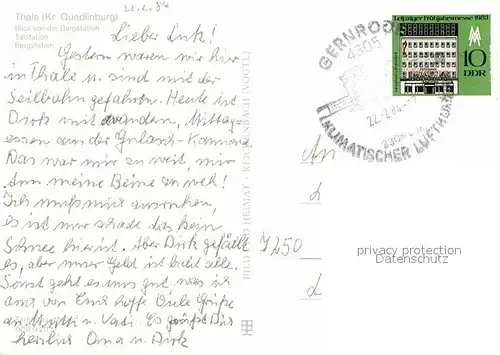 Thale (Kr. Quedlinburg)
Blick von der Bergstation
Talstation
Bergstation
22.2.84
Lieber Luk!
Gestern waren wir hier
in Thale u. sind mit der
Seilbahn gefahren. Heute ist
Dirk mit wandern, Mittag
essen aus der Gulasch-Kanone
Das war mir zu weit, mir
tun meine Beine zu weh!
Ich muß mich ausruhen,
es ist nur schade das kein
Schnee hier ist. Aber Dirk gefällt
es, aber unser Geld ist bald alle.
Sonst geht es uns gut, was ich
auch von Euch hoffe. Viele Grüße
an Mutti u. Vati. Es grüßt Dich
herzlich Oma u. Dirk
BILD UND HEIMAT · REICHENBACH (VOGTL)
GERNRODE
4305
22.2.84
KLIMATISCHER LUFTKURORT
Leipziger Frühjahrsmesse 1983
10
DDR
An
J 250
privacy protection
Datenschutz